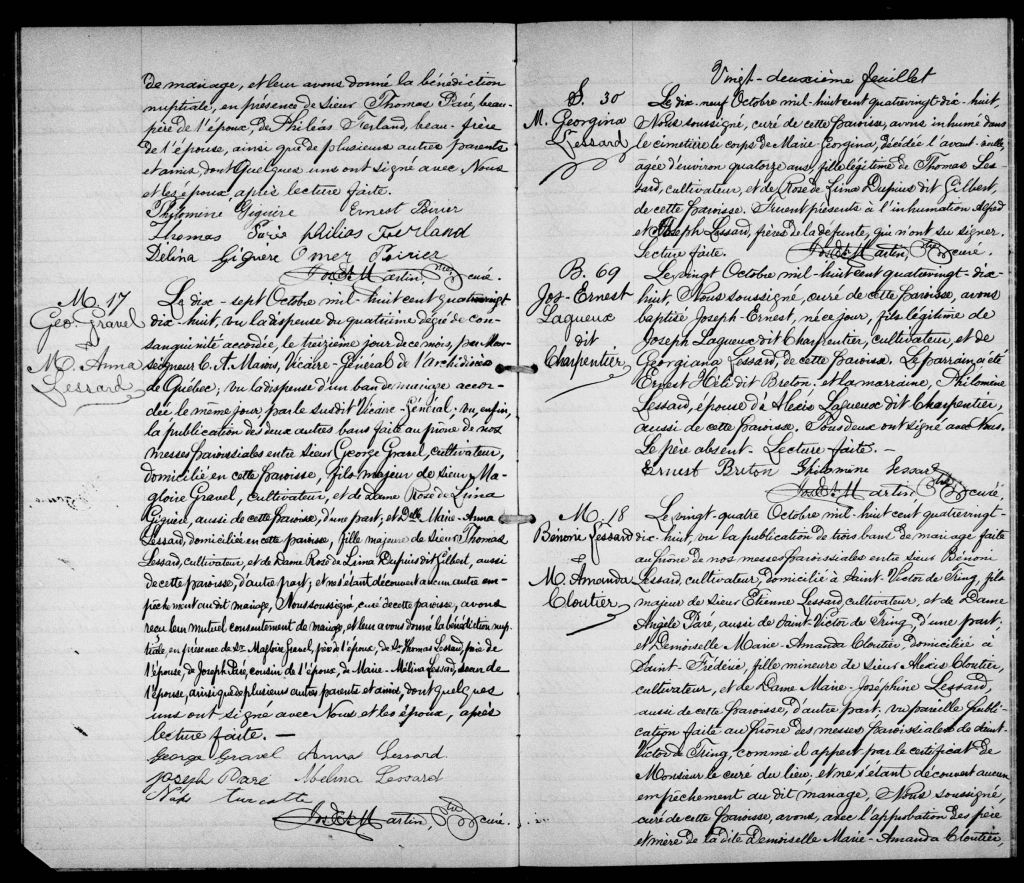 de mariage, et leur avons donné la bénédiction
nuptiale, en présence de Sieur Thomas Paré, beau-
père de l'époux, de Philéas Ferland, beau-frère
de l'épouse, ainsi que de plusieurs autres parents
et amis, dont quelques uns ont signé avec Nous
et les époux, après lecture faite.
Philomine Giguère Ernest Poirier
Thomas Parée Philias Ferland
Délina Giguere Omer Poirier
Jos. Et. Martin, Ptre curé.
M. 17
Geo. Gravel
&
M. Anna
Lessard
Le dix-sept Octobre mil-huit cent quatrevingt
dix-huit, vu la dispense du quatrième degré de con-
sanguinité accordée, le treizième jour de ce mois, par Mon-
seigneur C. A. Marois, Vicaire-Général de l'Archidiocèse
de Québec; vu la dispense d'un ban de mariage accor-
dée le même jour, par le susdit Vicaire-Général; vu, enfin,
la publication des deux autres bans faite au prône de nos
messes paroissiales entre Sieur George Gravel, cultivateur,
domicilié en cette paroisse, fils majeur de Sieur Ma-
gloire Gravel, cultivateur, et de Dame Rose de Lima
Giguère, aussi de cette paroisse, d'une part; et Delle Marie-Anna
Lessard, domiciliée en cette paroisse, fille majeure de Sieur Thomas
Lessard, cultivateur, et de Dame Rose de Lima Dupuis dit Gilbert, aussi
de cette paroisse, d'autre part; et ne s'étant découvert aucun autre em-
pêchement au dit mariage, Nous soussigné, curé de cette paroisse, avons
reçu leur mutuel consentement de mariage, et leur avons donné la bénédiction nup-
tiale, en présence de Sr. Magloire Gravel, père de l'époux, de Sr. Thomas Lessard, père de
l'épouse, de Joseph Paré, cousin de l'époux, de Marie-Mélina Lessard, soeur de
l'épouse, ainsi que de plusieurs autres parents et amis, dont quelques
uns ont signé avec Nous et les époux, après
lecture faite. —
George Gravel Anna Lessard
Joseph Paré Melina Lessard
Turcotte
Jos. Et. Martin, Ptre curé.
Vingt-deuxième feuillet
S. 30
M. Georgina
Lessard
Le dix-neuf Octobre mil-huit cent quatrevingt-dix-huit,
Nous soussigné, curé de cette paroisse, avons inhumé dans
le cimetière le corps de Marie Georgina, décédée l'avant-veille,
agée d'environ quatorze ans, fille légitime de Thomas Les-
sard, cultivateur, et de Rose de Lima Dupuis dit Gilbert,
de cette paroisse. Furent présents à l'inhumation Alfred
et Joseph Lessard, frères de la defunte, qui n'ont su signer.
Lecture faite. Jos. Et. Martin, Ptre curé.
B. 69
Jos-Ernest
Laqueux
dit
Charpentier
Le vingt Octobre mil-huit cent quatrevingt dix-
huit, Nous soussigné, curé de cette paroisse, avons
baptisé Joseph-Ernest, né ce jour, fils légitime de
Joseph Laqueux dit Charpentier, cultivateur, et de
Georgiana Lessard, de cette paroisse. Le parrain a été
Ernest Hélie dit Breton, et la marraine, Philomine
Lessard, épouse d'Alexis Laqueux dit Charpentier,
aussi de cette paroisse. Tous deux ont signé avec Nous.
Le père absent. Lecture faite. —
Ernest Breton Philomine Lessard
Jos. Et. Martin, Ptre curé.
M. 18
Bénoni Lessard
&
M. Amanda
Cloutier
Le vingt-quatre Octobre mil-huit cent quatrevingt-
dix-huit, vu la publication de trois bans de mariage faite
au prône de nos messes paroissiales entre Sieur Bénoni
Lessard, cultivateur, domicilié à Saint-Victor de Tring, fils
majeur de Sieur Etienne Lessard, cultivateur, et de Dame
Angèle Paré, aussi de Saint-Victor de Tring, d'une part;
et Demoiselle Marie-Amanda Cloutier, domiciliée à
Saint-Fréderic, fille mineure de Sieur Alexis Cloutier,
cultivateur, et de Dame Marie-Joséphine Lessard,
aussi de cette paroisse, d'autre part; vu pareille publi-
cation faite au prône des messes paroissiales de Saint-
Victor de Tring, comme il appert par le certificat de
Monsieur le curé du lieu, et ne s'étant découvert aucun
empêchement au dit mariage, Nous soussigné,
curé de cette paroisse, avons, avec l'approbation des père
et mère de la dite Demoiselle Marie-Amanda Cloutier,